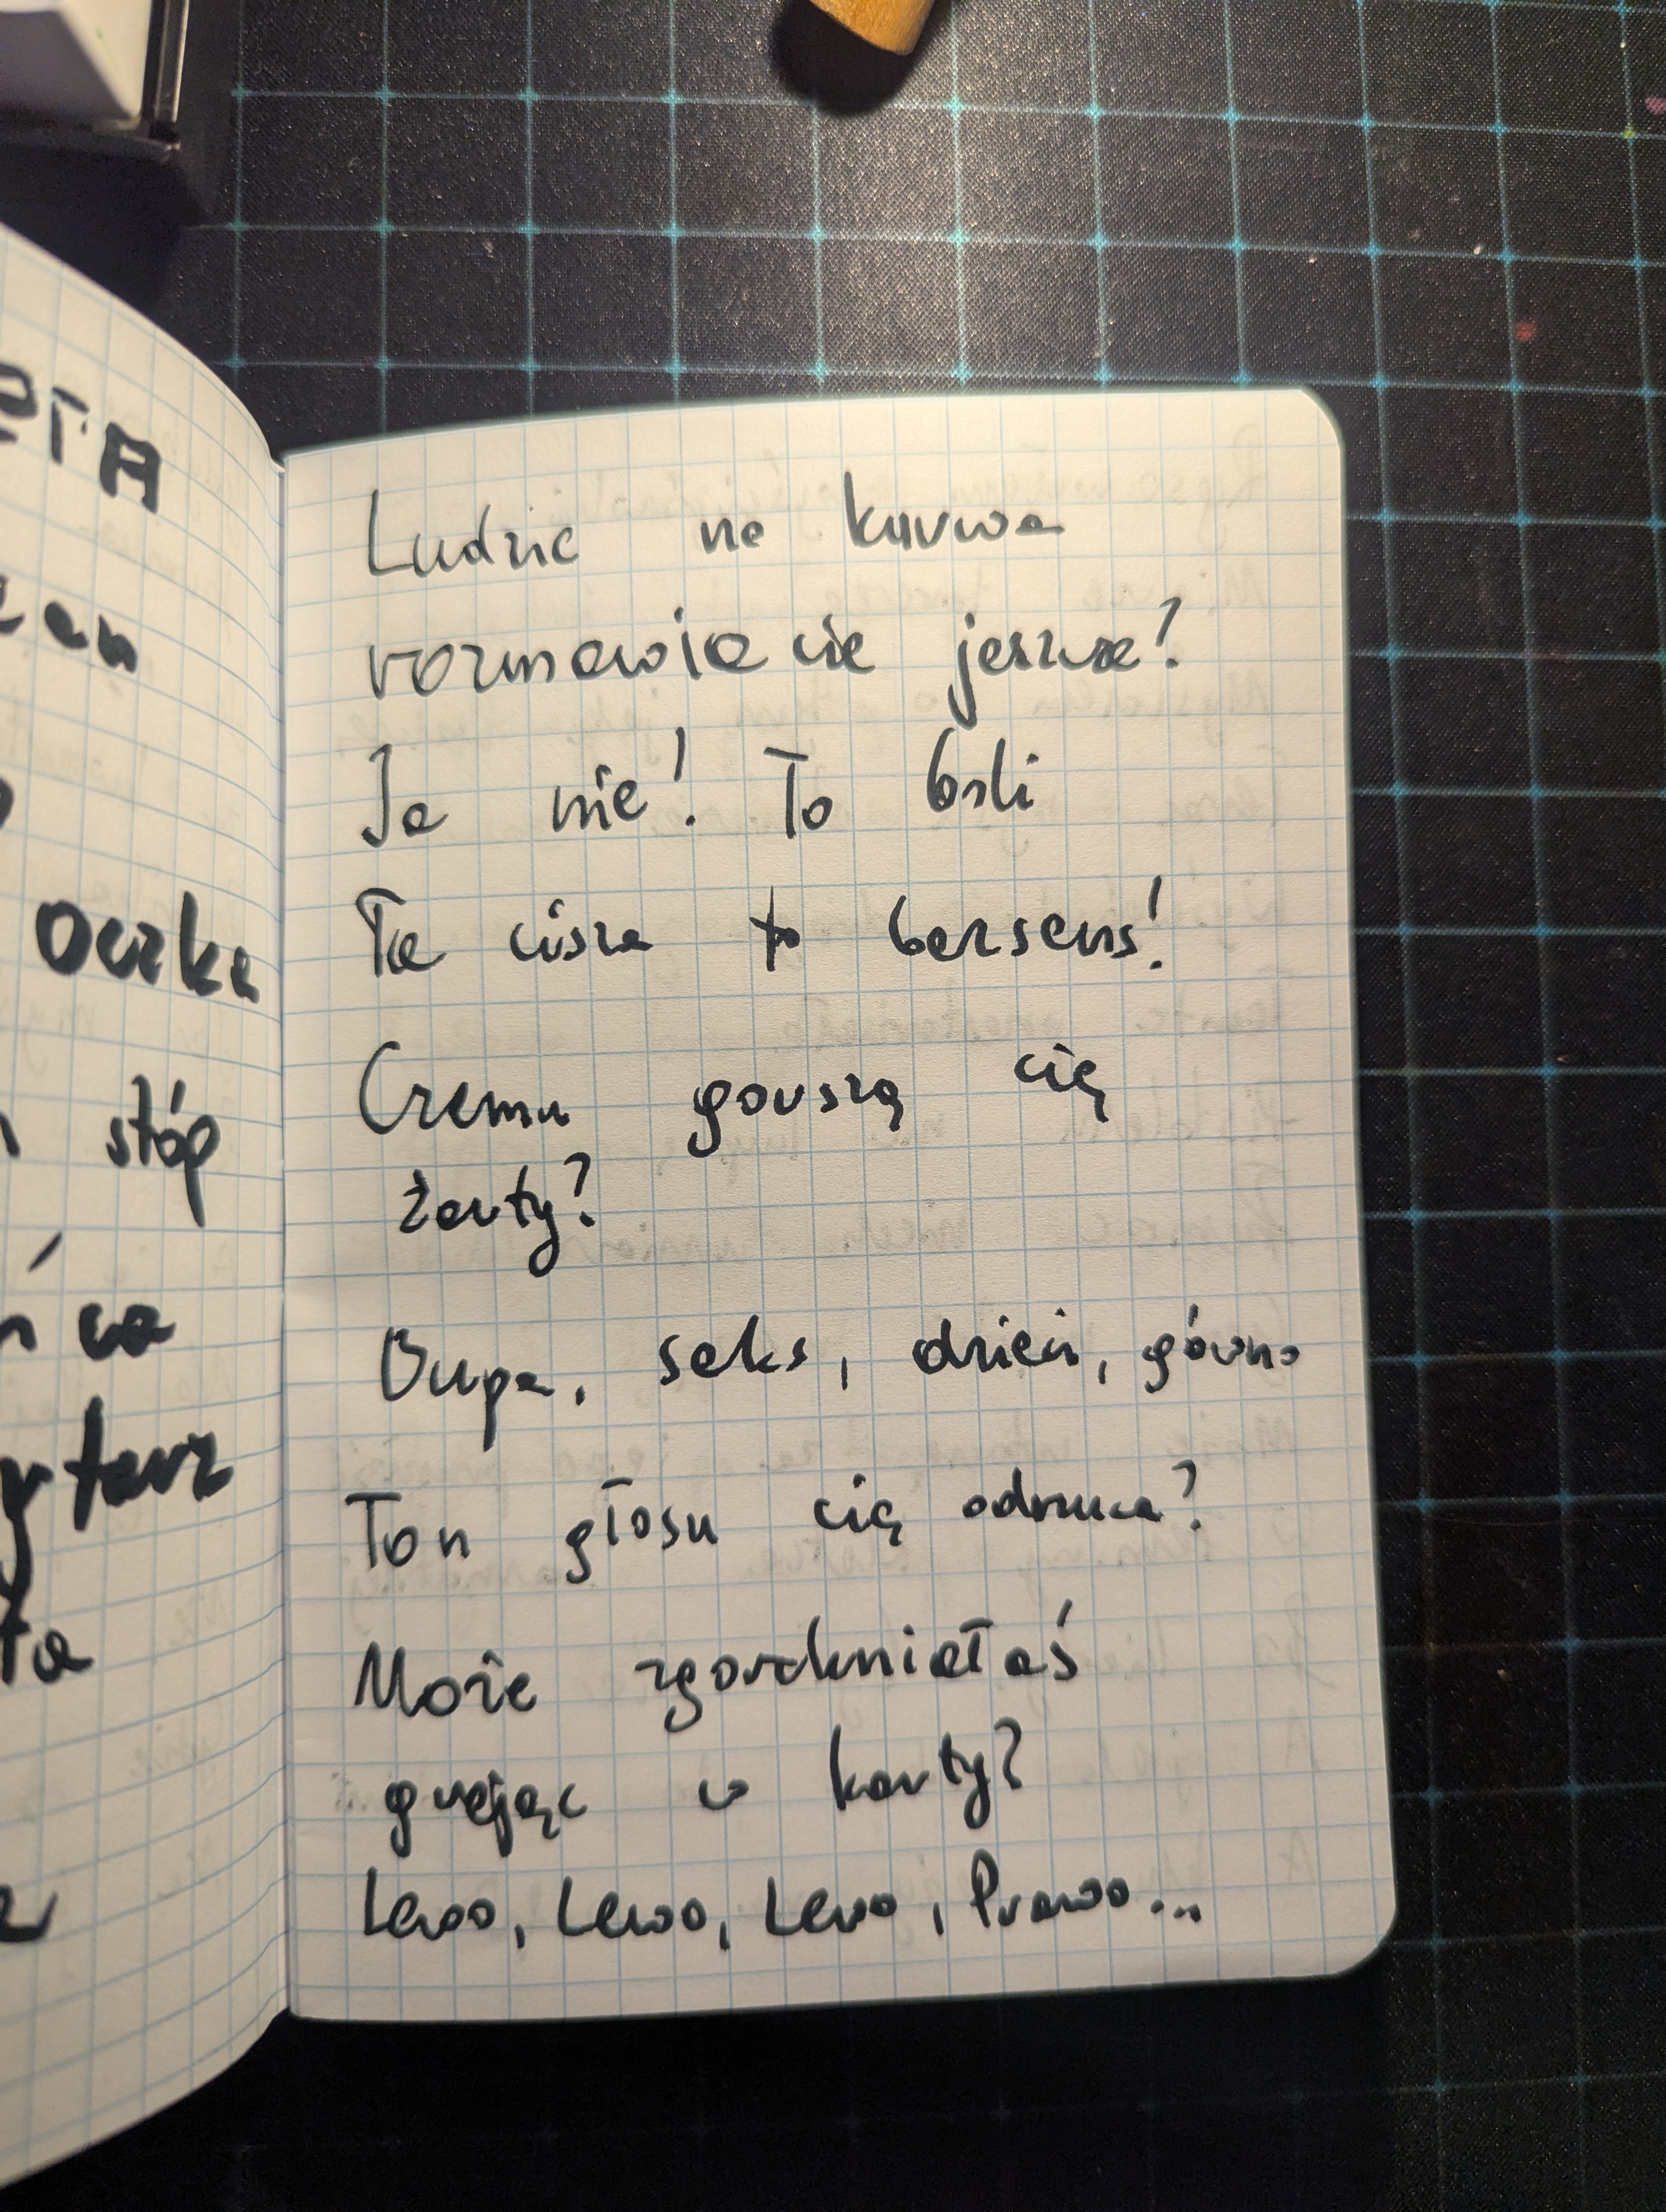 Ludzie na kurwa
rozmawiacie jeszcze?
Ja nie! To boli
Ta cisza to bezsens!
Czemu gorszą cię
żarty?
Dupa, seks, dzieci, gówno
Ton głosu cię odrzuca?
Może zgorzkniałaś
grając w karty?
Lewo, Lewo, Lewo, Prawo...
oczka
stóp